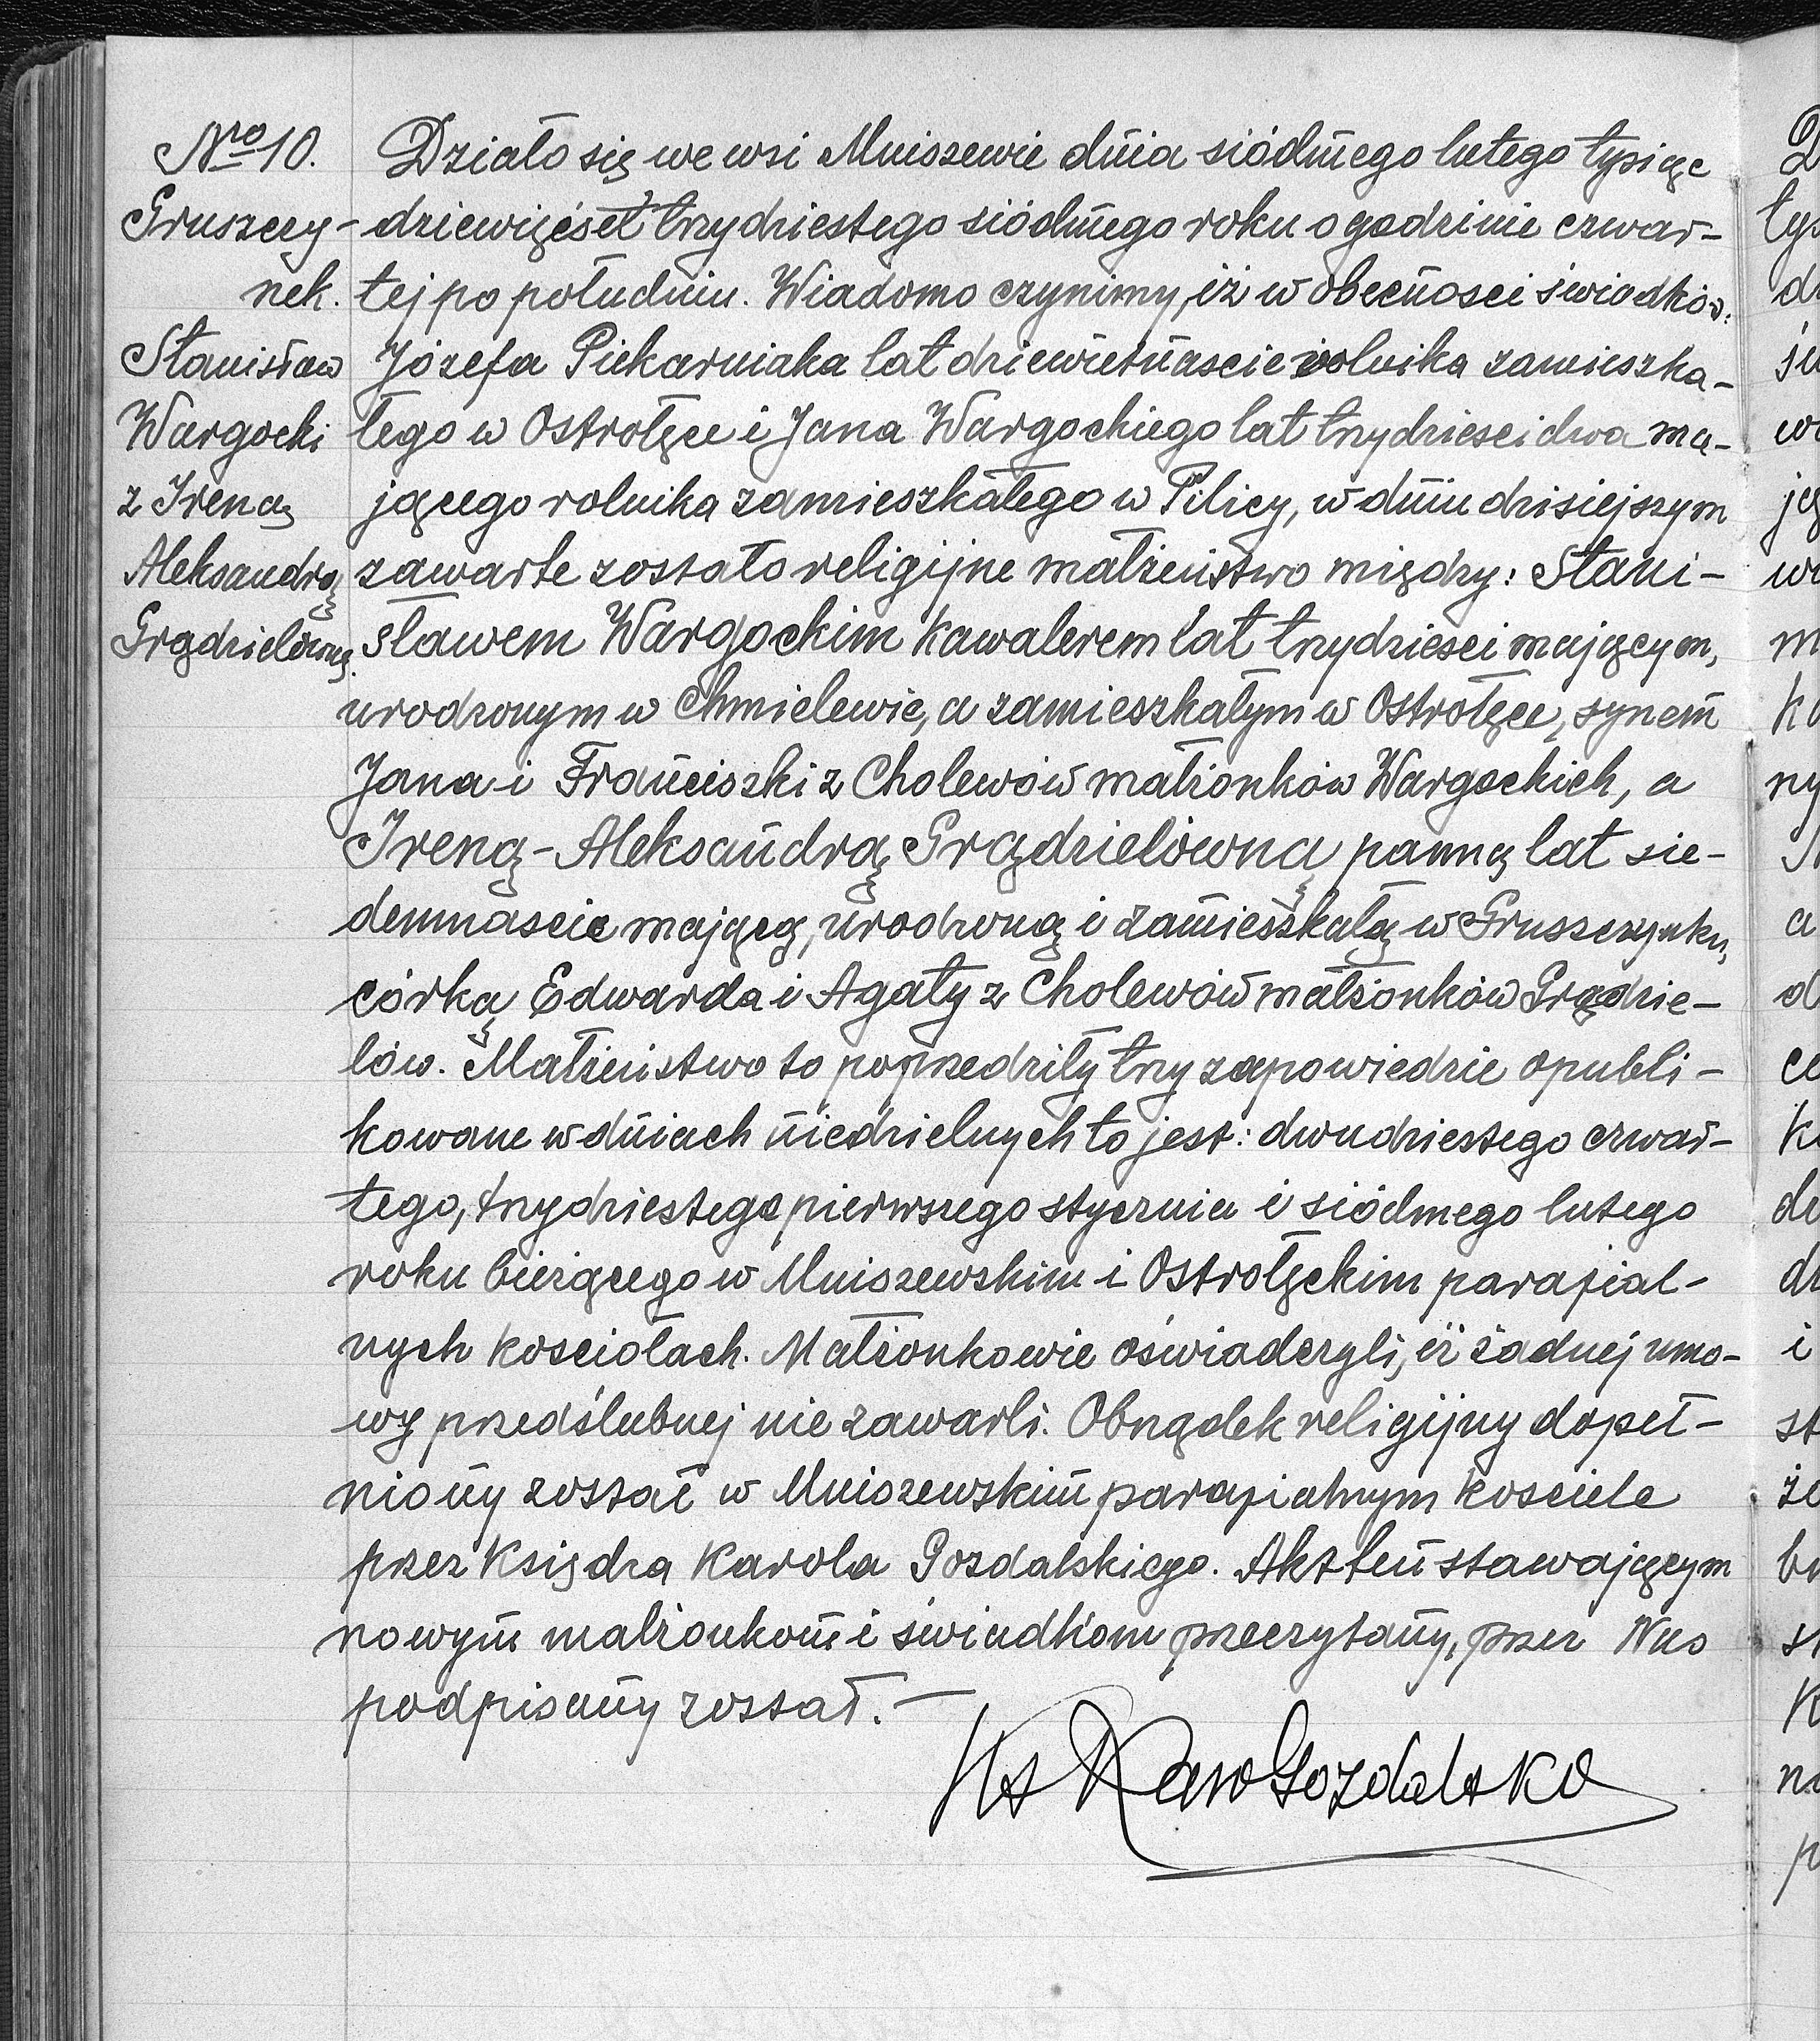 Nro 10.
Gruszczy-
nek.
Stanisław
Wargocki
z Ireną
Aleksandrą
Grądzielówną.
Działo się we wsi Mniszewie dnia siódmego lutego tysiąc
dziewięćset trzydziestego siódmego roku o godzinie czwar-
tej po południu. Wiadomo czynimy, iż w obecności świadków:
Józefa Piekarniaka lat dziewietnaście rolnika zamieszka-
łego w Ostrołęce i Jana Wargockiego lat trzydzieści dwa ma-
jącego rolnika zamieszkałego w Pilicy, w dniu dzisiejszym
zawarte zostało religijne małżeństwo między: Stani-
sławem Wargockim kawalerem lat trzydzieści mającym,
urodzonym w Chmielewie, a zamieszkałym w Ostrołęce, synem
Jana i Franciszki z Cholewów małżonków Wargockich, a
Ireną-Aleksandrą Grądzielówną panną lat sie-
demnaście mającą, urodzoną i zamieszkałą w Gruszczynku,
córką Edwarda i Agaty z Cholewów małżonków Grądzie-
lów. Małżeństwo to poprzedziły trzy zapowiedzie opubli-
kowane w dniach niedzielnych to jest: dwudziestego czwar-
tego, trzydziestego pierwszego stycznia i siódmego lutego
roku bieżącego w Mniszewskim i Ostrołęckim parafial-
nych kościołach. Małżonkowie oświadczyli, iż żadnej umo-
wy przedślubnej nie zawarli. Obrządek religijny dopeł-
niony został w Mniszewskim parafialnym kościele
przez Księdza Karola Gozdalskiego. Akt ten stawającym
nowym małżonkom i świadkom przeczytany, przez Nas
podpisany został. —
Ks Karol Gozdalski